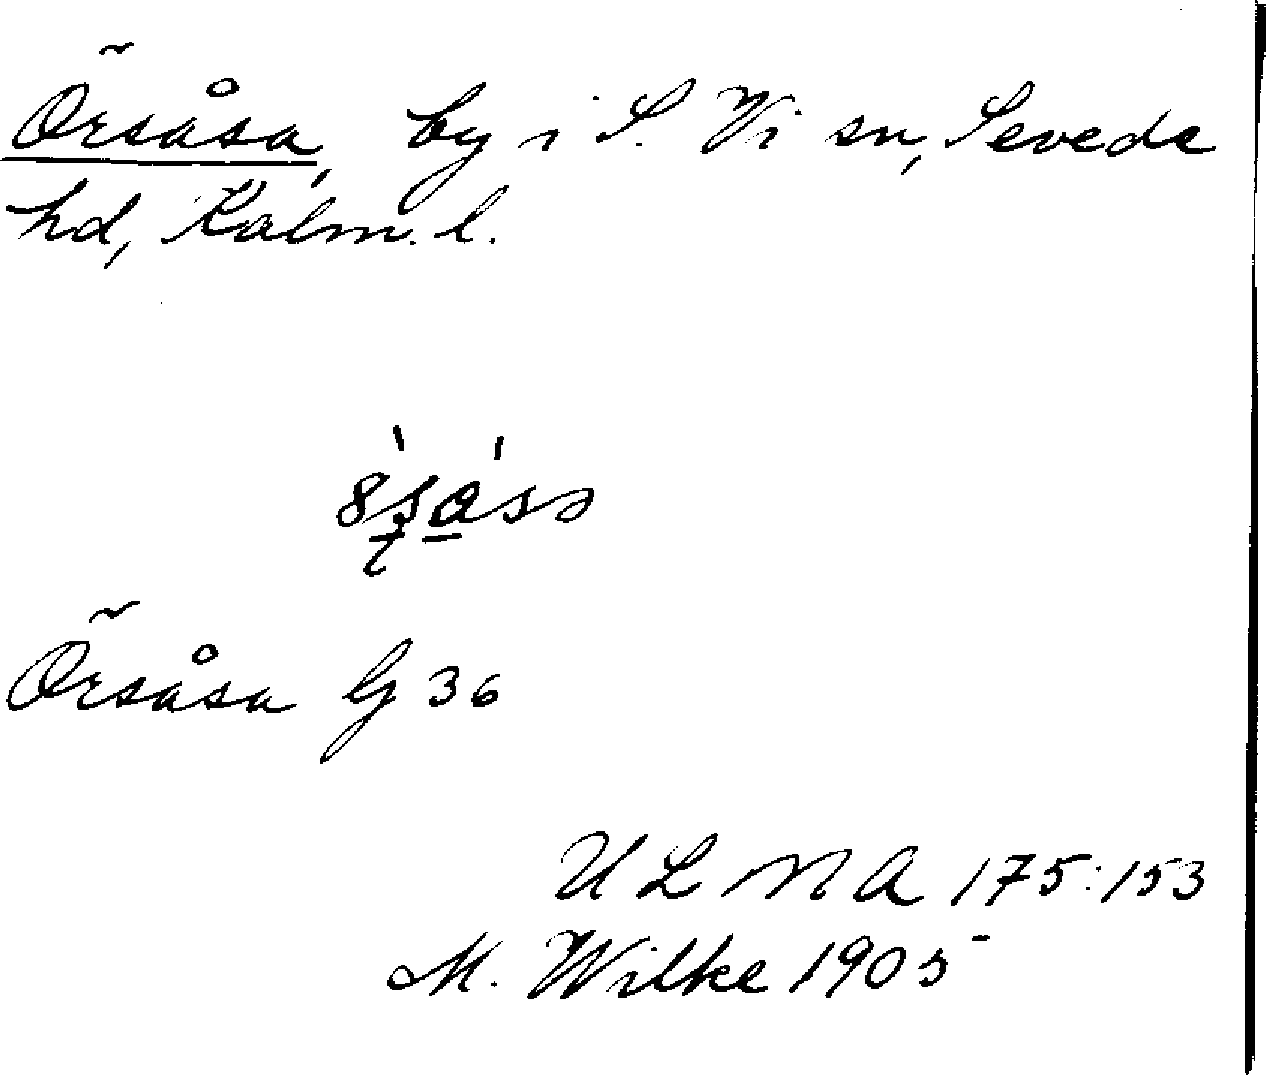 Örsåsa, by i S. Vi sn, Sevede
hd, Kalm. l.
Örsåsa G 36
U L M A 175:153
M. Wilke 1905